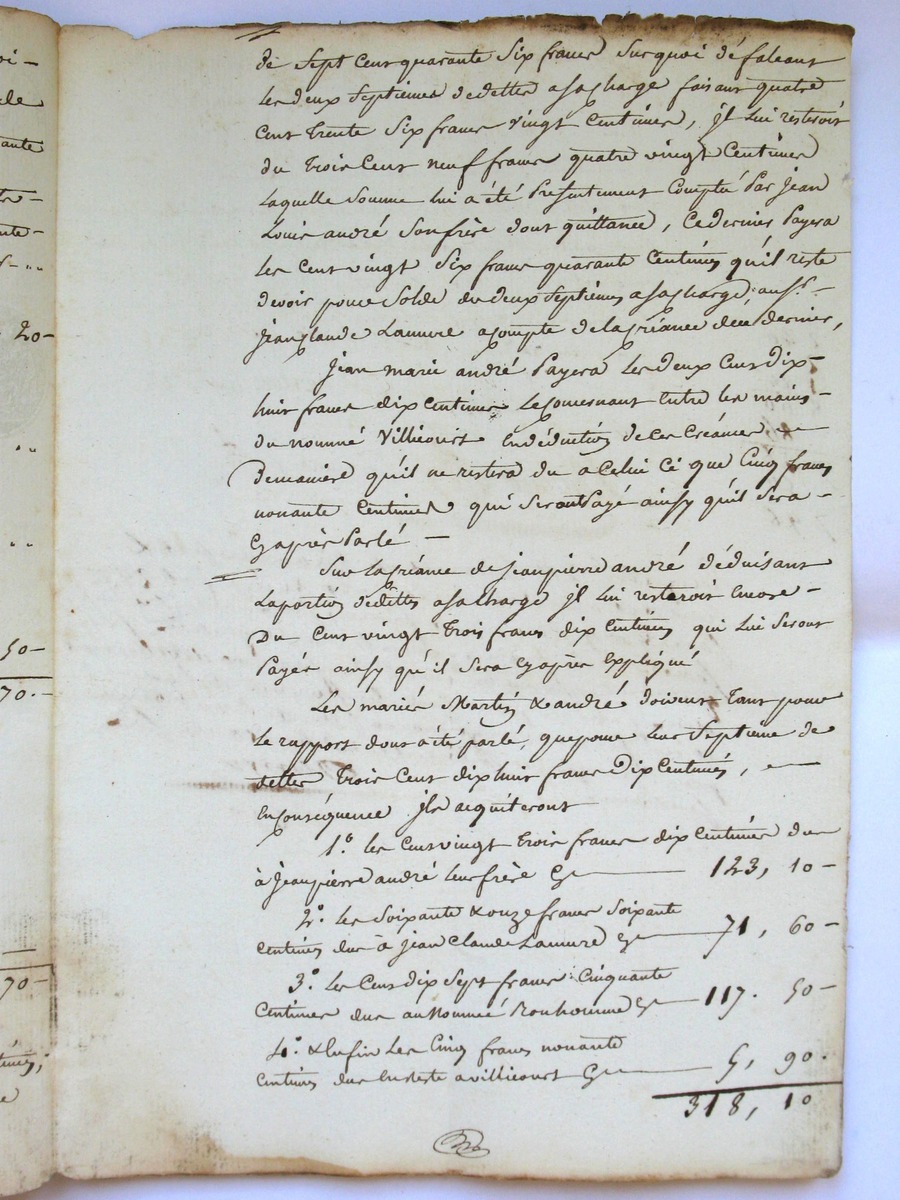 de Sept Cent quarante Six francs Surquoi défalcant
les deux Septiemes dedettes asacharge faisant quatre
Cent trente Six francs vingt Centimes, jl lui resteroit
du trois Cent neuf francs quatre vingt Centimes
laquelle Somme lui a été Presentement Compté Par jean
Louis andré Sonfrère dont quittance, Cedernier Payera
les Cent vingt Six francs quarante Centimes qu'il reste
devoir pour Solde des deux Septiemes asacharge, aus.r
jeanClaude Lamure acompte delaCréance decedernier,
jean marie andré Payera les deux Cent dix-
huit francs dix Centimes leConcernant Entre les mains
du nommé Villicourt Endéduction de ses Créances
Demanière qu'il ne restera du a Celui Ci que Cinq francs
nonante Centimes qui SerontPayé ainsy qu'il Sera
CyaprèsParlé
Sur laCréance de jeanpierre andré déduisant
laportion dedettes asacharge jl lui resteroit Encore
Du Cent vingt trois francs dix Centimes qui lui Seront
Payés ainsy qu'il Sera Cyaprès Expliqué
Les mariés Martin & andré doivent tant pour
le rapport dont aété parlé, quepour leur Septième de
dettes trois Cent dix huit francs Dix Centimes,
Enconséquence jls acquiteront
1.º les Cent vingt trois francs dix Centimes du
à jeanpierre andré leur frère Cy 123, 10
2.º Les Soixante & onze francs Soixante
Centimes dus à jean Claude Lamure Cy 71, 60
3.º Les Cent dix Sept francs Cinquante
Centimes dus au Nommé Bonhomme Cy 117. 50
4.º & Enfin Les Cinq francs nonante
Centimes dus Enreste a villicourt Cy 5, 90.
318, 10